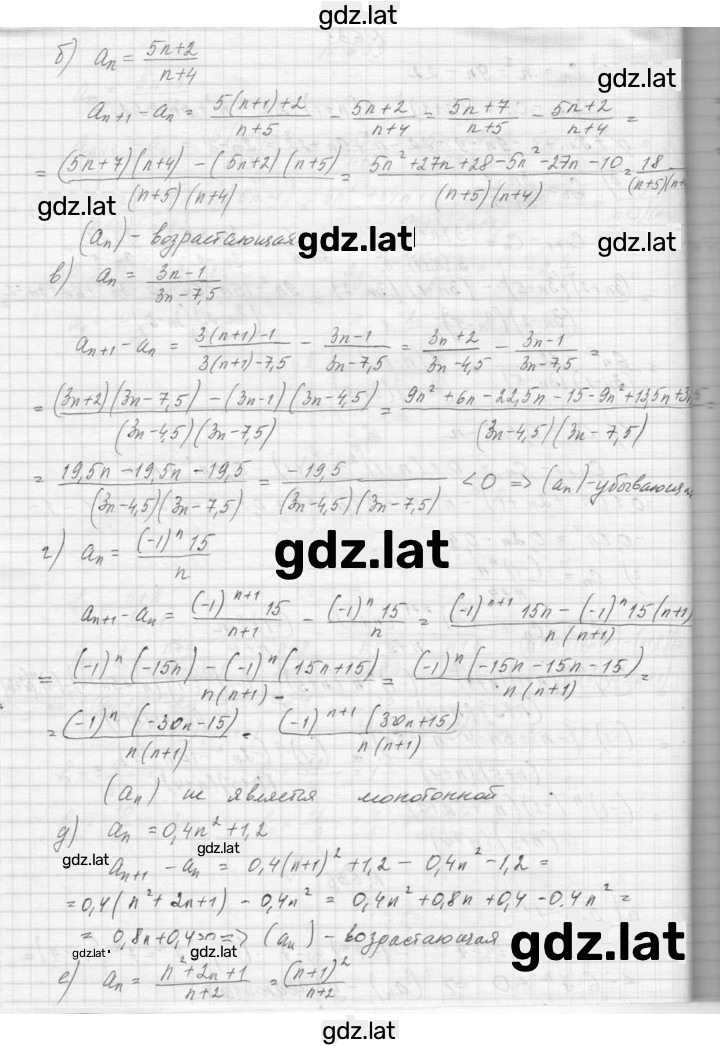 gdz.lat
б) aₙ = (5n+2)/(n+4)
gdz.lat
aₙ₊₁ - aₙ = (5(n+1)+2)/(n+5) - (5n+2)/(n+4) = (5n+7)/(n+5) - (5n+2)/(n+4) =
= ((5n+7)(n+4) - (5n+2)(n+5))/((n+5)(n+4)) = (5n²+27n+28-5n²-27n-10)/((n+5)(n+4)) = 18/((n+5)(n+
gdz.lat
(aₙ) - возрастающая
gdz.lat
gdz.lat
в) aₙ = (3n-1)/(3n-7,5)
aₙ₊₁ - aₙ = (3(n+1)-1)/(3(n+1)-7,5) - (3n-1)/(3n-7,5) = (3n+2)/(3n-4,5) - (3n-1)/(3n-7,5) =
= ((3n+2)(3n-7,5) - (3n-1)(3n-4,5))/((3n-4,5)(3n-7,5)) = (9n²+6n-22,5n-15-9n²+13,5n+3n/((3n-4,5)(3n-7,5))
= (19,5n-19,5n-19,5)/((3n-4,5)(3n-7,5)) = (-19,5)/((3n-4,5)(3n-7,5)) < 0 => (aₙ) - убывающая
г) aₙ = ((-1)ⁿ15)/n
gdz.lat
aₙ₊₁ - aₙ = ((-1)ⁿ⁺¹15)/(n+1) - ((-1)ⁿ15)/n = ((-1)ⁿ⁺¹15n - (-1)ⁿ15(n+1))/(n(n+1))
= ((-1)ⁿ(-15n) - (-1)ⁿ(15n+15))/(n(n+1)) = ((-1)ⁿ(-15n-15n-15))/(n(n+1)) =
= ((-1)ⁿ(-30n-15))/(n(n+1)) = ((-1)ⁿ⁺¹(30n+15))/(n(n+1))
(aₙ) не является монотонной
д) aₙ = 0,4n²+1,2
gdz.lat
gdz.lat
aₙ₊₁ - aₙ = 0,4(n+1)²+1,2 - 0,4n²-1,2 =
= 0,4(n²+2n+1) - 0,4n² = 0,4n²+0,8n+0,4-0.4n² =
= 0,8n+0,4>0 => (aₙ) - возрастающая
gdz.lat
gdz.lat
е) aₙ = (n²+2n+1)/(n+2) = (n+1)²/(n+2)
gdz.lat